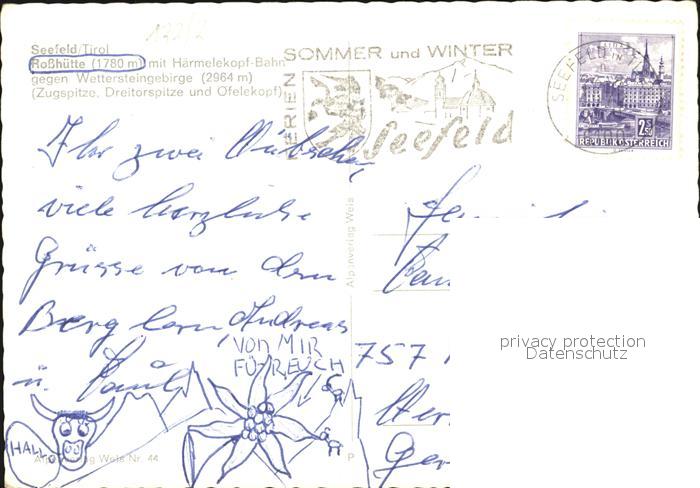 Seefeld/Tirol
Roßhütte (1780 m) mit Härmelekopf-Bahn
gegen Wettersteingebirge (2964 m)
(Zugspitze, Dreitorspitze und Öfelekopf)
FERIEN
SOMMER und WINTER
Seefeld
SEEFELD IN T
2 S 50
REPUBLIK ÖSTERREICH
Ihr zwei Hübschen,
viele herzliche
Grüsse von den
Andreas
u.
VON MIR
FÜR EUCH
HALLO
Alpenverlag Weis Nr. 44
Alpenverlag Weis
P
757
privacy protection
Datenschutz